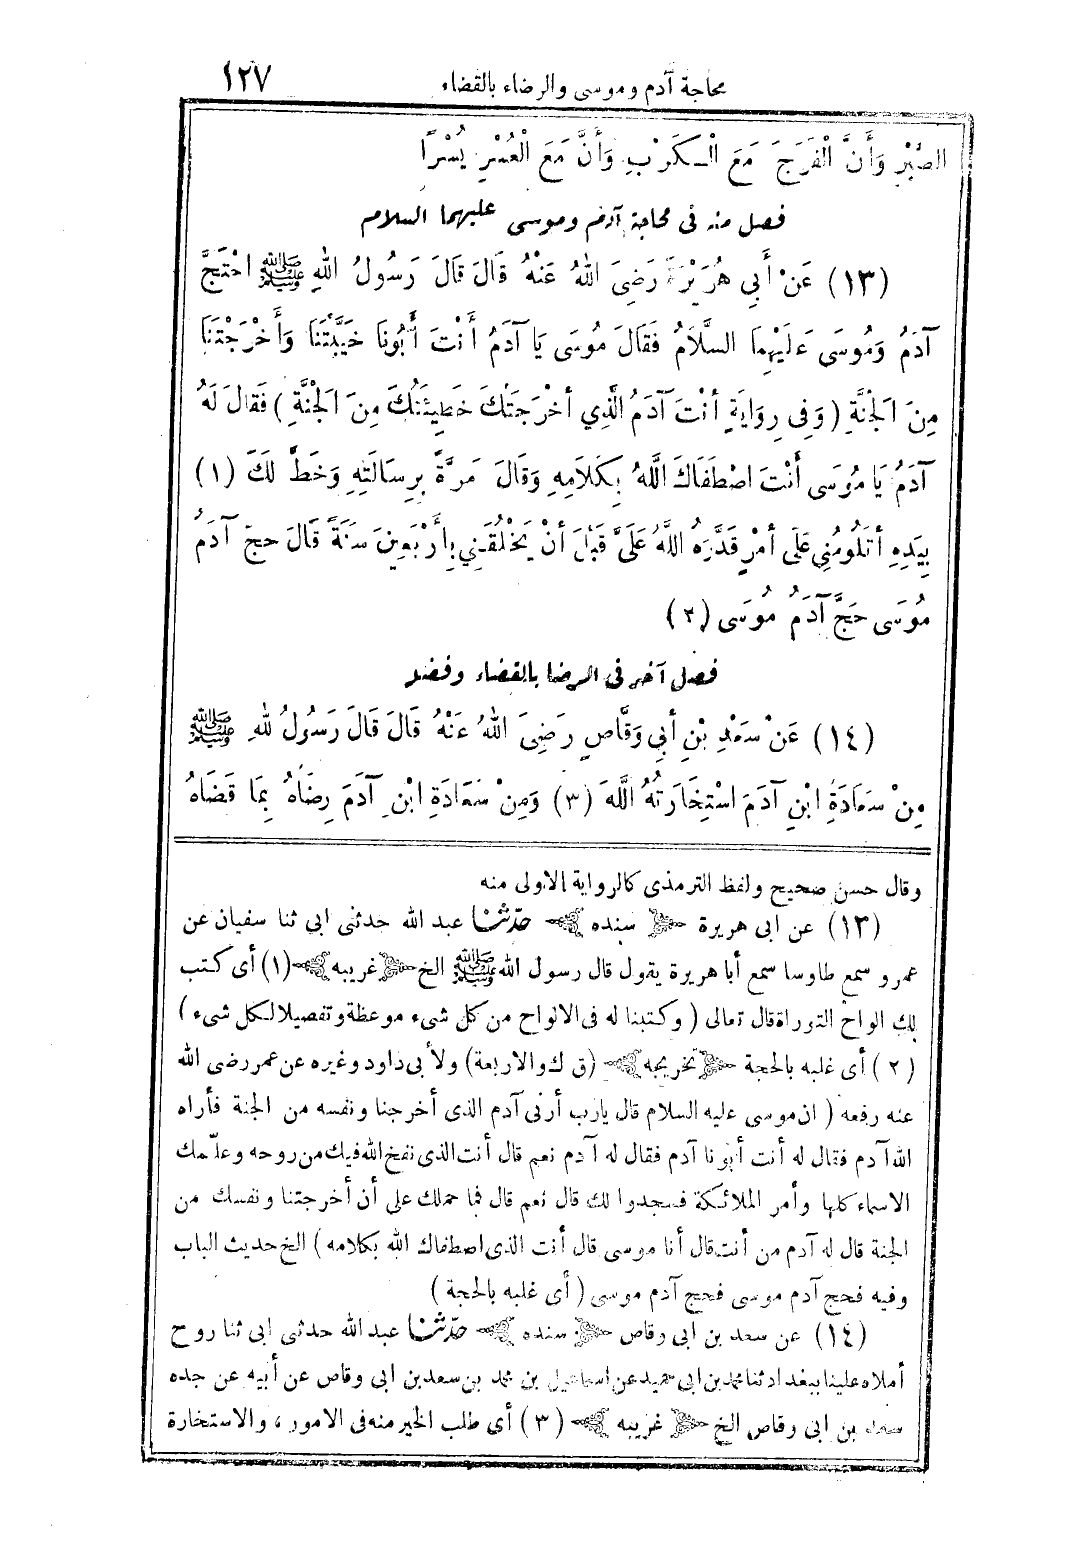 محاجة آدم وموسى والرضاء بالقضاء ١٢٧
الصَّبْرِ وَأَنَّ الْفَرَجَ مَعَ الْـكَرْبِ وَأَنَّ مَعَ الْعُسْرِ يُسْرًا
فصل منه فى محاجة آدم وموسى عليهما السلام
(١٣) عَنْ أَبِي هُرَيْرَةَ رَضِىَ اللهُ عَنْهُ قَالَ قَالَ رَسُولُ اللهِ ﷺ احْتَجَّ
آدَمُ وَمُوسَى عَلَيْهِما السَّلَامُ فَقَالَ مُوسَى يَا آدَمُ أَنْتَ أَبُونَا خَيَّبْتَنَا وَأَخْرَجْتَنَا
مِنَ الَجْنَّةِ (وَفِى رِوَايَةٍ أَنْتَ آدَمُ الَّذِي أَخْرَجَتْكَ خَطِيئَتُكَ مِنَ الَجْنَّةِ) فَقَالَ لَهُ
آدَمُ يَا مُوسَى أَنْتَ اصْطَفَاكَ اللَّهُ بِكَلَامِهِ وَقَالَ مَرَّةً بِرِسَالَتِهِ وَخَطَّ لَكَ (١)
بِيَدِهِ أَتَلُومُنِي عَلَى أَمْرٍ قَدَّرَهُ اللَّهُ عَلَىَّ قَبْلَ أَنْ يَخْلُقَنِي بِأَرْبَعِينَ سَنَةً قَالَ حَجَّ آدَمُ
مُوسَى حَجَّ آدَمُ مُوسَى (٢)
فصل آخر فى الرضا بالقضاء وفضله
(١٤) عَنْ سَعْدِ بْنِ أَبِي وَقَّاصٍ رَضِىَ اللهُ عَنْهُ قَالَ قَالَ رَسُولُ للهِ ﷺ
مِنْ سَعَادَةِ ابْنِ آدَمَ اسْتِخَارَتُهُ اللَّهَ (٣) وَمِنْ سَعَادَةِ ابْنِ آدَمَ رِضَاهُ بِمَا قَضَاهُ
وقال حسن صحيح ولفظ الترمذى كالرواية الاولى منه
(١٣) عن ابى هريرة ﴿سنده﴾ حدّثنا عبد الله حدثنى ابى ثنا سفيان عن
عمرو سمع طاوسا سمع أبا هريرة يقول قال رسول الله ﷺ الخ ﴿غريبه﴾ (١) أى كتب
لك الواح التوراة قال تعالى (وكتبنا له فى الالواح من كل شىء موعظة وتفصيلا لكل شىء)
(٢) أى غلبه بالحجة ﴿تخريجه﴾ (ق ك والاربعة) ولأبى داود وغيره عن عمر رضى الله
عنه رفعه (ان موسى عليه السلام قال يارب أرنى آدم الذى أخرجنا ونفسه من الجنة فأراه
الله آدم فقال له أنت أبونا آدم فقال له آدم نعم قال أنت الذى نفخ الله فيك من روحه وعلّمك
الاسماء كلها وأمر الملائكة فسجدوا لك قال نعم قال فما حملك على أن أخرجتنا ونفسك من
الجنة قال له آدم من أنت قال أنا موسى قال أنت الذى اصطفاك الله بكلامه) الخ حديث الباب
وفيه فحج آدم موسى فحج آدم موسى (أى غلبه بالحجة)
(١٤) عن سعد بن ابى وقاص ﴿سنده﴾ حدّثنا عبد الله حدثى ابى ثنا روح
أملاه علينا ببغداد ثنا محمد بن ابى حميد عن اسماعيل بن محمد بن سعد بن ابى وقاص عن أبيه عن جده
سعد بن ابى وقاص الخ ﴿غريبه﴾ (٣) أى طلب الخير منه فى الامور، والاستخارة